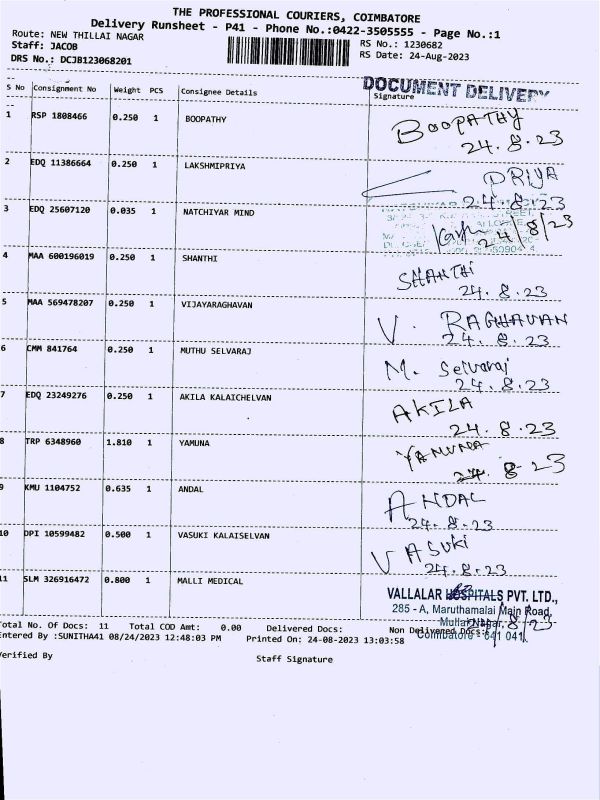 THE PROFESSIONAL COURIERS, COIMBATORE
Delivery Runsheet - P41 - Phone No.:0422-3505555 - Page No.:1
Route: NEW THILLAI NAGAR
Staff: JACOB
DRS No.: DCJB123068201
RS No.: 1230682
RS Date: 24-Aug-2023
DOCUMENT DELIVERY
S No Consignment No Weight PCS Consignee Details Signature
1 RSP 1808466 0.250 1 BOOPATHY BOOPATHY
24.8.23
2 EDQ 11386664 0.250 1 LAKSHMIPRIYA PRIYA
24.8.23
3 EDQ 25607120 0.035 1 NATCHIYAR MIND
24/8/23
4 MAA 600196019 0.250 1 SHANTHI SHANTHI
24.8.23
5 MAA 569478207 0.250 1 VIJAYARAGHAVAN V. RAGHAVAN
24.8.23
6 CMM 841764 0.250 1 MUTHU SELVARAJ M. Selvaraj
24.8.23
7 EDQ 23249276 0.250 1 AKILA KALAICHELVAN AKILA
24.8.23
8 TRP 6348960 1.810 1 YAMUNA YAMUNA
24. 8-23
9 KMU 1104752 0.635 1 ANDAL ANDAL
24.8.23
10 DPI 10599482 0.500 1 VASUKI KALAISELVAN VASUKi
24.8.23
11 SLM 326916472 0.800 1 MALLI MEDICAL VALLALAR HOSPITALS PVT. LTD.,
285 - A, Maruthamalai Main Road,
Mullai Nagar,
Coimbatore - 641 041.
24/8/23
Total No. Of Docs: 11 Total COD Amt: 0.00 Delivered Docs: Non Delivered Docs:
Entered By :SUNITHA41 08/24/2023 12:48:03 PM Printed On: 24-08-2023 13:03:58
Verified By Staff Signature